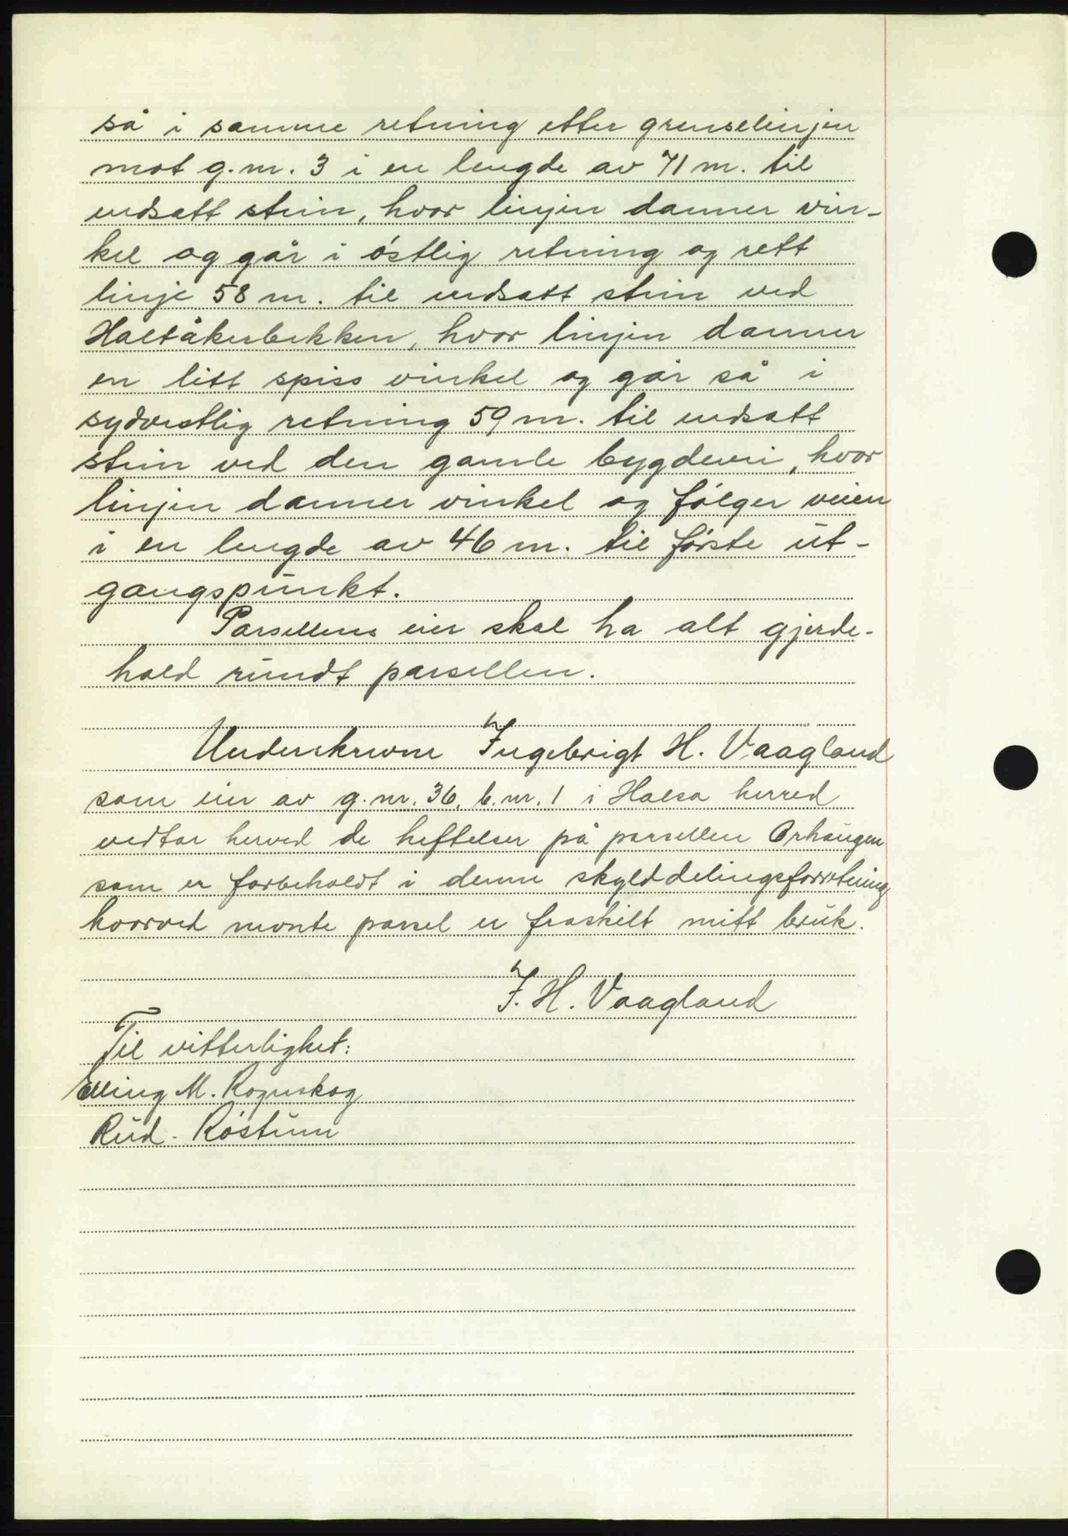 så i samme retning etter grenselinjen
mot g.nr. 3 i en lengde av 71 m. til
nedsatt sten, hvor linjen danner vin-
kel og går i østlig retning og rett
linje 58 m. til nedsatt sten ved
Haltåkerbekken, hvor linjen danner
en litt spiss vinkel og går så i
sydvestlig retning 59 m. til nedsatt
sten ved den gamle bygdevei, hvor
linjen danner vinkel og følger veien
i en lengde av 46 m. til første ut-
gangspunkt.
Parsellens eier skal ha alt gjerde-
hold rundt parsellen.
Underskrevne Ingebrigt H. Vaagland
som eier av g.nr. 36, b.nr. 1 i Halsa herred
vedtar herved de heftelser på parsellen Orhaugen
som er forbeholdt i denne skylddelingsforretning
hvorved nevnte parsel er fraskilt mitt bruk.
I. H. Vaagland
Til vitterlighet:
Elling M. Rognskog
Rud. Røstum